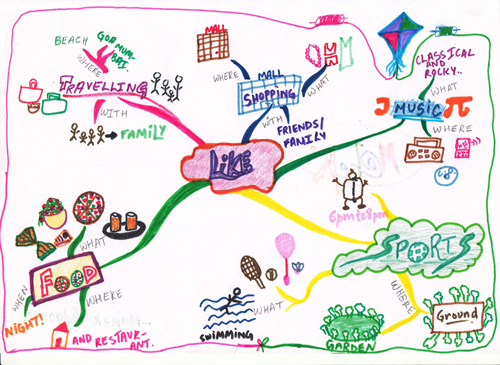 BEACH
GOA MUM-
BAI.
WHERE
TRAVELLING
WITH
FAMILY
MALL
WHERE
MALL
SHOPPING
WHAT
WITH
FRIENDS/
FAMILY
CLASSICAL
AND
ROCKY..
WHAT
MUSIC
WHERE
LIKE
6pm to 8pm
SPORTS
WHAT
SWIMMING
WHERE
GARDEN
Ground
WHAT
FOOD
WHEN
NIGHT!
WHERE
AND RESTAUR-
ANT.